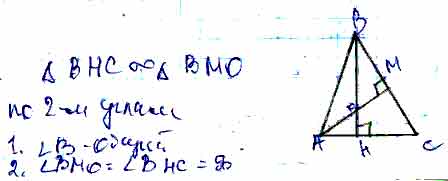 Δ BHC ∾ Δ BMO
по 2-м углам
1. ∠B - общий
2. ∠BMO = ∠BHC = 90
B
M
A
H
C